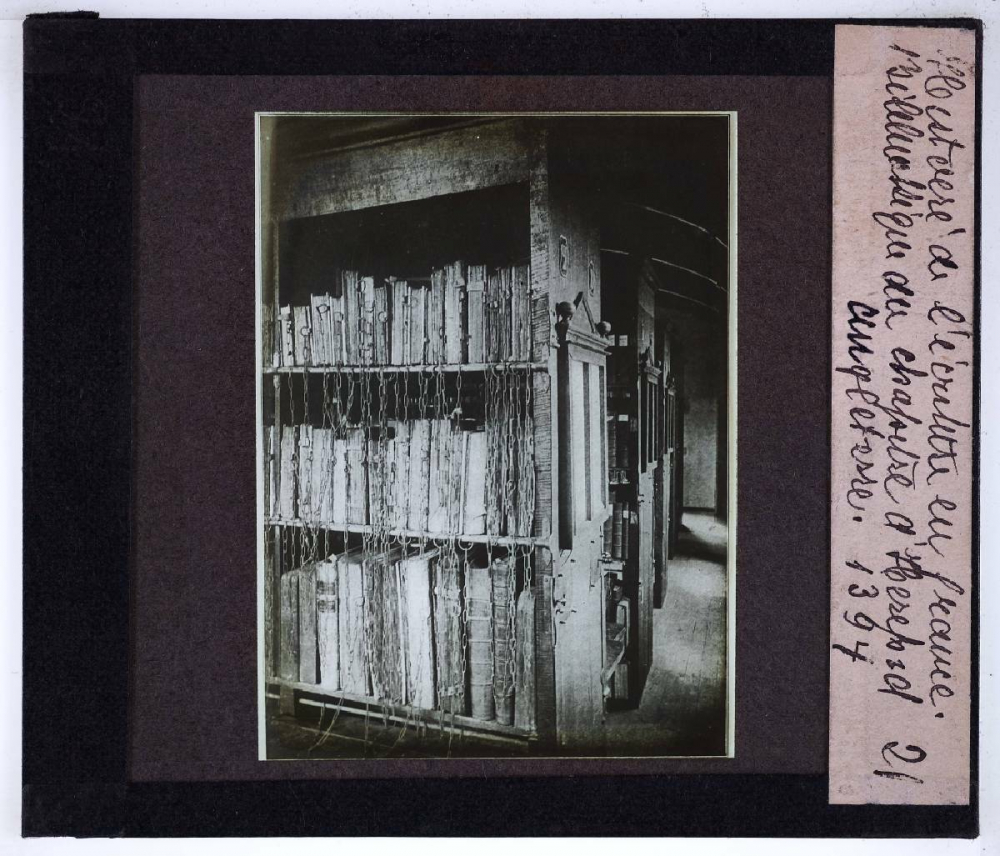 Histoire de l'écriture en france.
Bibliothèque du chapitre d'Hereford 21
angleterre. 1394